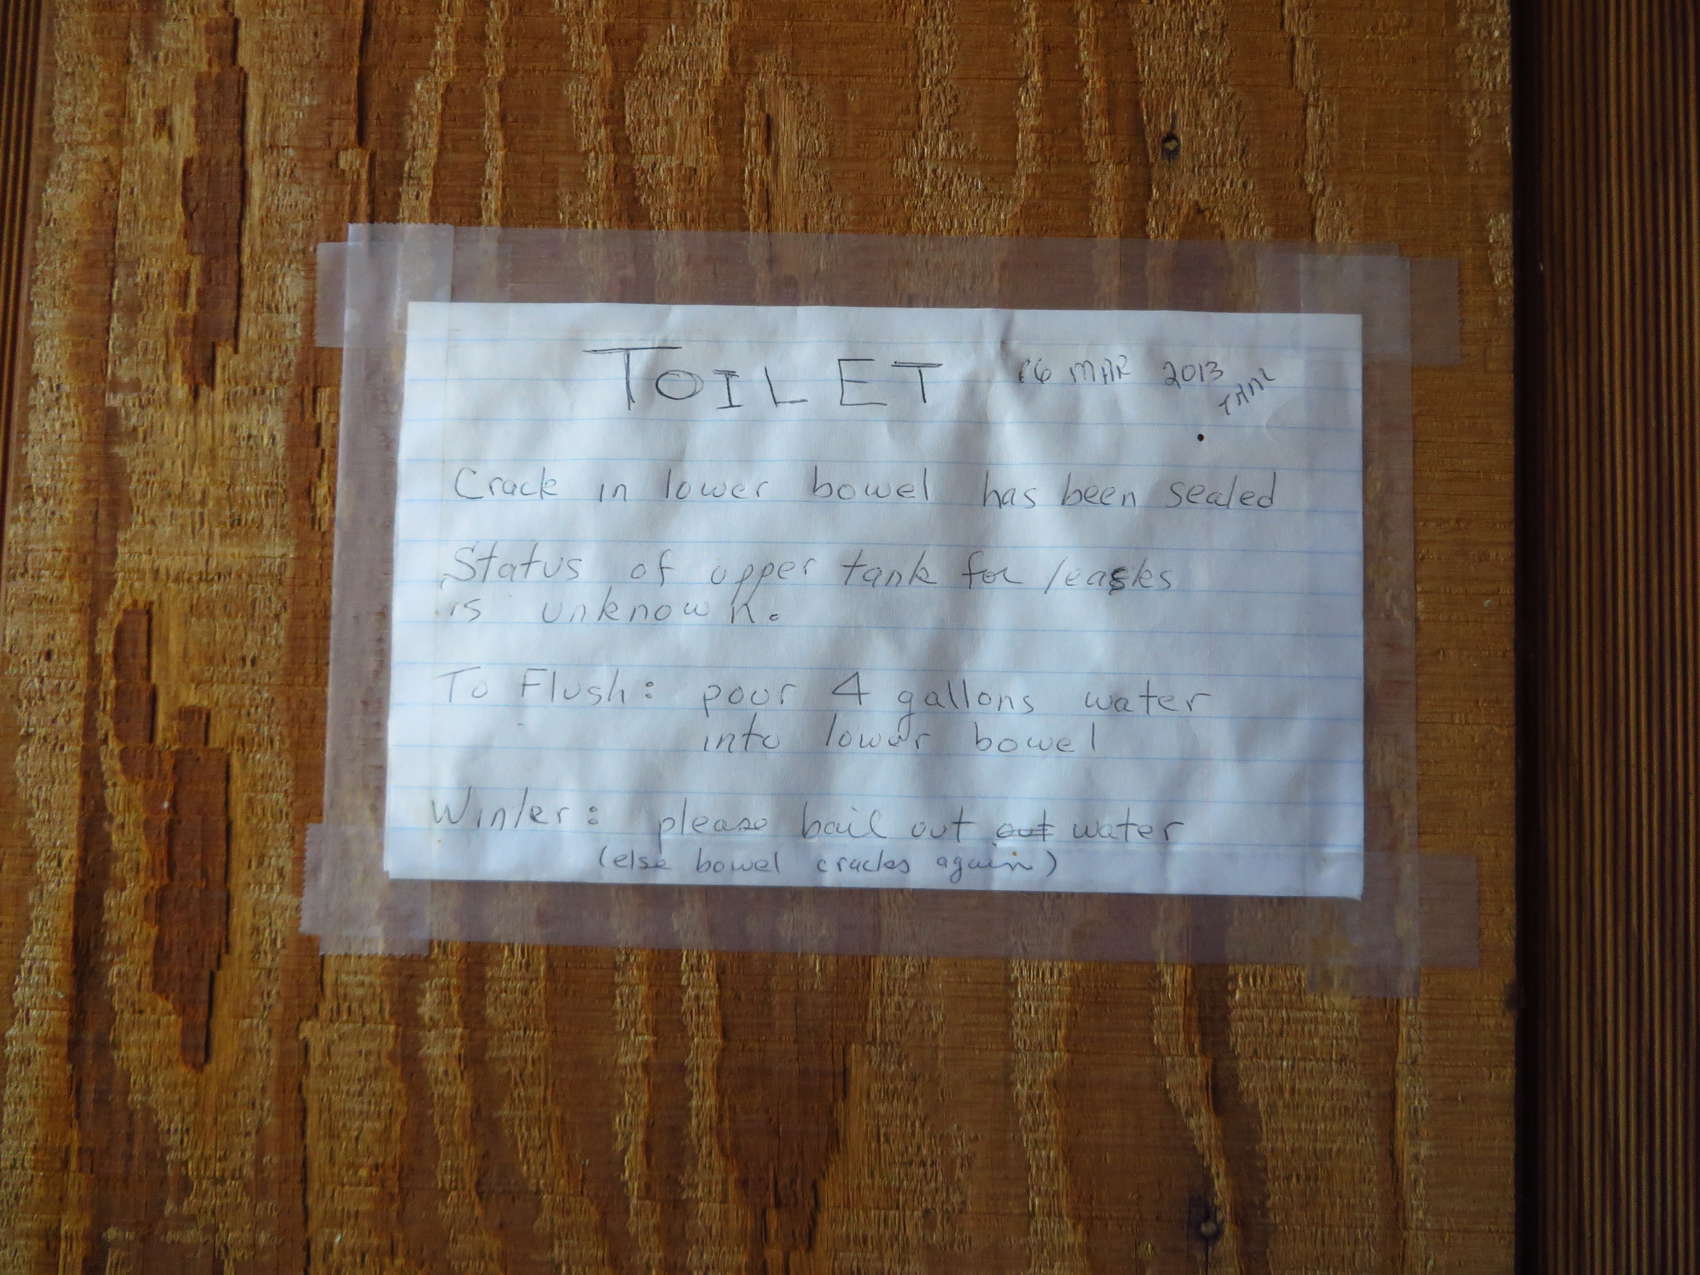 TOILET 16 MAR 2013
Crack in lower bowel has been sealed
Status of upper tank for leaks
is unknown.
To Flush: pour 4 gallons water
into lower bowel
Winter: please bail out out water
(else bowel cracks again)